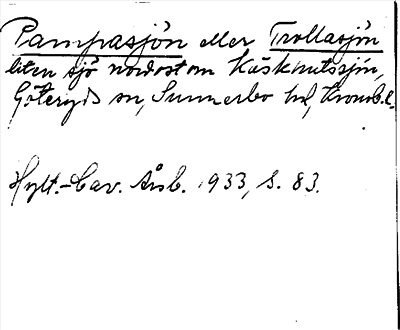 Pampasjön eller Trollasjön
liten sjö nordost om Käsknutssjön,
Göteryds sn, Sunnerbo hd, Kronob. l.
Hylt.-Cav. Årsb. 1933, s. 83.